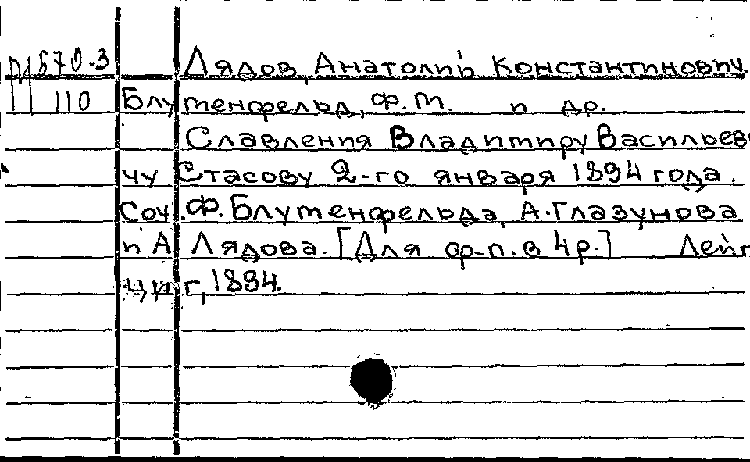 М 670-3 Лядов, Анатолий Константинович.
110 Блуменфельд, Ф.М. и др.
Славления Владимиру Василье
чу Стасову 2-го января 1894 года.
Соч. Ф. Блуменфельда, А. Глазунова
и А Лядова. [Для ф-п. в 4 р.] Лейп
циг, 1894.